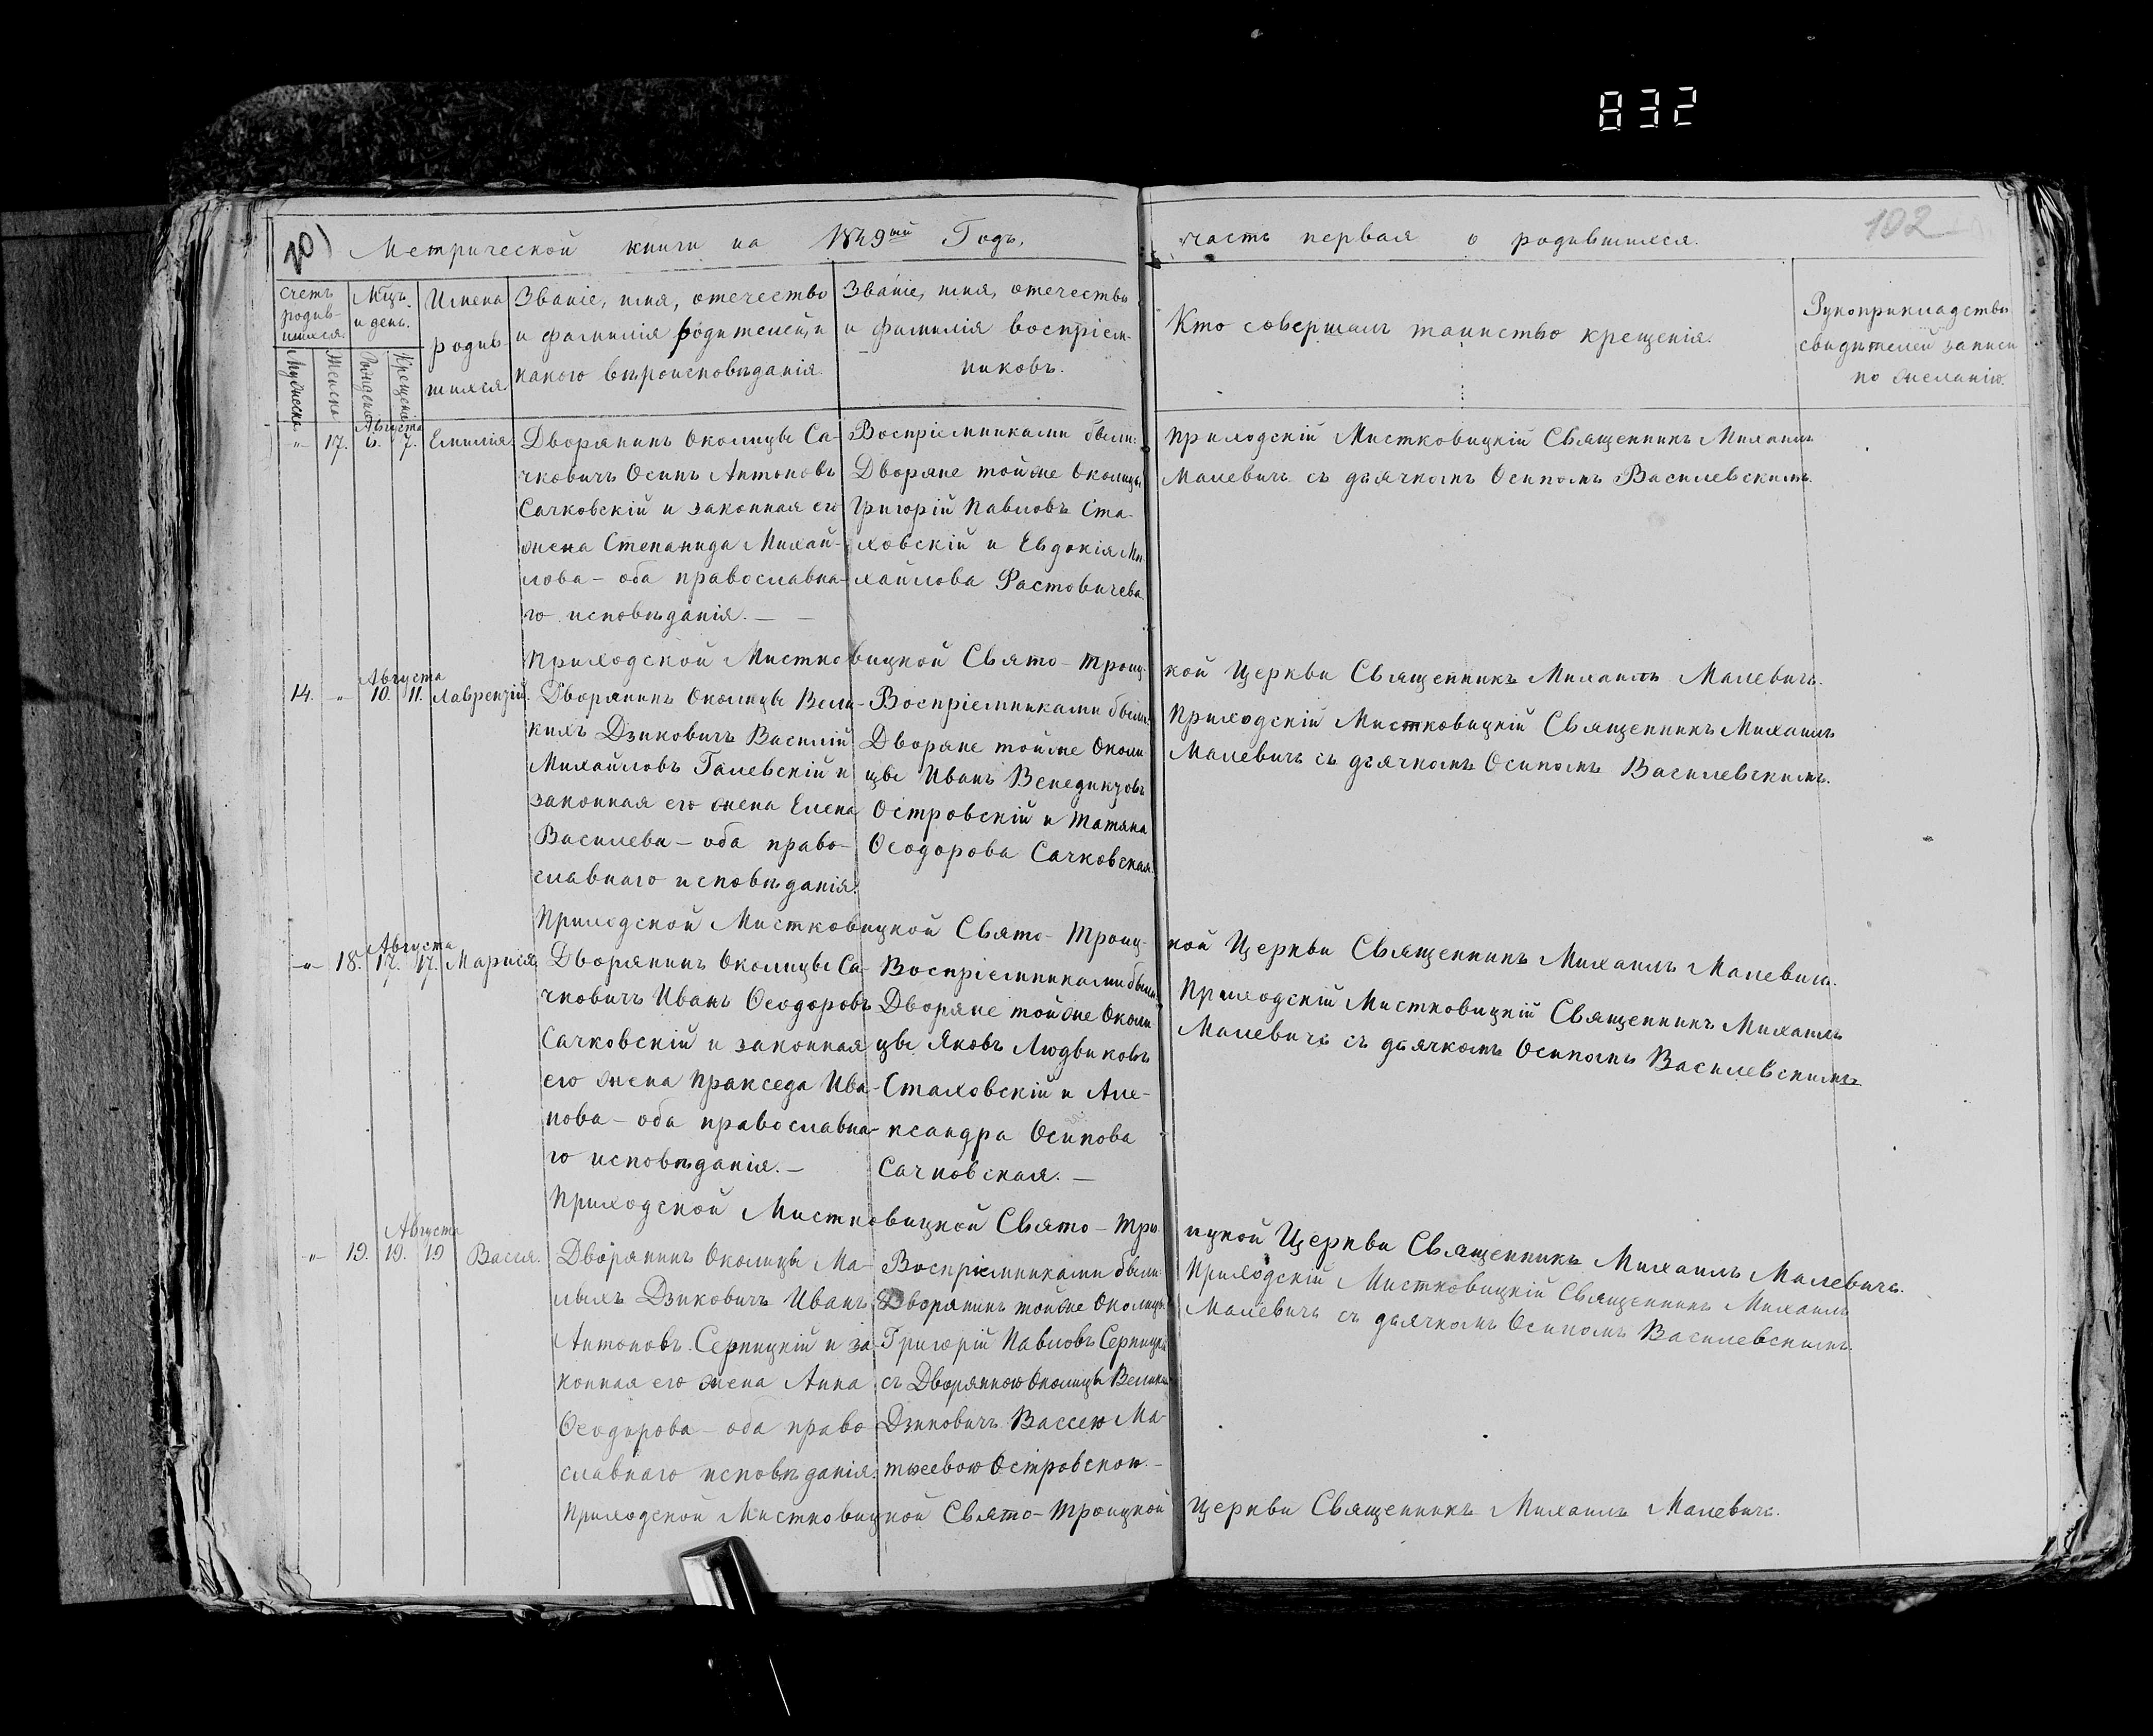 832
102
20) Метрической книги на 1849ый Годъ, часть первая о родившихся.
Счетъ родив-шихся.
Мужеска
Женска
Мѣцъ. и день.
Рожденія
Крещенія
Имена родив-шихся.
Званіе, имя, отечество
и фамилія родителей, и
какого вѣроисповѣданія.
Званіе, имя, отечество
и фамилія воспріем-
никовъ.
Кто совершалъ таинство крещенія.
Рукоприкладство
свидѣтелей записи
по желанію.
Августа
-"- 17. 6. 7. Емилія.
Дворянинъ Околицы Са-
чковичъ Осипъ Антоновъ
Сачковскій и законная его
жена Степанида Михай-
лова - оба православна-
го исповѣданія. —
Воспріемниками были:
Дворяне той же Околицы
Григорій Павловъ Ста-
ховскій и Евдокія Ми-
хайлова Растовичева.
Приходскій Мистковицкій Священникъ Михаилъ
Малевичъ съ дьячкомъ Осипомъ Василевскимъ.
Приходской Мистковицкой Свято-Троиц-кой Церкви Священникъ Михаилъ Малевичъ.
Августа
14. -"- 10. 11. Лаврентій.
Дворянинъ Околицы Вели-
кихъ Дзиковичъ Василій
Михайловъ Галевскій и
законная его жена Елена
Василева - оба право-
славнаго исповѣданія.
Воспріемниками были:
Дворяне той же Околи
цы Иванъ Венедиктовъ
Островскій и Татяна
Ѳеодорова Сачковская.
Приходскій Мистковицкій Священникъ Михаилъ
Малевичъ съ дьячкомъ Осипомъ Василевскимъ.
Приходской Мистковицкой Свято-Троиц-кой Церкви Священникъ Михаилъ Малевичъ.
Августа
-"- 18. 17. 17. Марися.
Дворянинъ Околицы Са-
чковичъ Иванъ Ѳеодоровъ
Сачковскій и законная
его жена Пракседа Ива-
нова - оба православна-
го исповѣданія. —
Воспріемниками были:
Дворяне той же Околи
цы Яковъ Людвиковъ
Стаховскій и Але-
ксандра Осипова
Сачковская. —
Приходскій Мистковицкій Священникъ Михаилъ
Малевичъ съ дьячкомъ Осипомъ Василевскимъ.
Приходской Мистковицкой Свято-Трои ицкой Церкви Священникъ Михаилъ Малевичъ.
Августа
-"- 19. 19. 19 Васся.
Дворянинъ Околицы Ма-
лыхъ Дзиковичъ Иванъ
Антоновъ Серницкій и за-
конная его жена Анна
Ѳеодорова - оба право
славнаго исповѣданія.
Воспріемниками были:
Дворянинъ той же Околицы
Григорій Павловъ Серницкій
съ Дворянкою Околицы Великихъ
Дзиковичъ Вассею Ма-
тѳеевою Островскою. —
Приходскій Мистковицкій Священникъ Михаилъ
Малевичъ съ дьячкомъ Осипомъ Василевскимъ.
Приходской Мистковицкой Свято-Троицкой Церкви Священникъ Михаилъ Малевичъ.